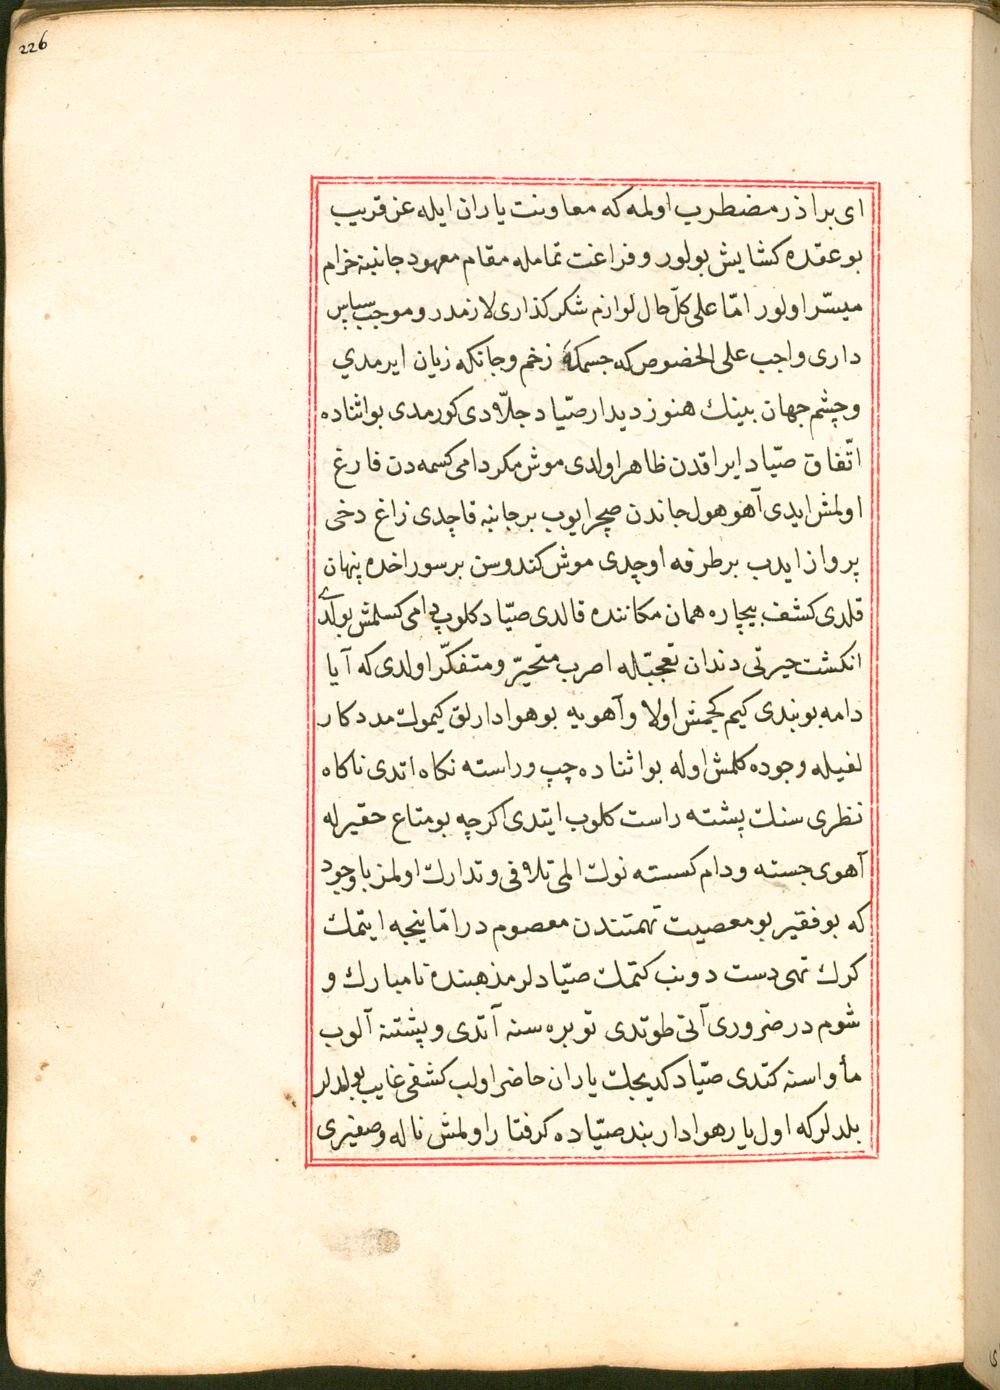 226
ای براذر مضطرب اولمه که معاونت یاران ایله عن قریب
بو عقده کشایش بولور و فراغت تمامله مقام معهود جانبنه خرام
میسّر اولور امّا علی کلّ حال لوازم شکر کذاری لازمدر و موجب سپاس
داری واجب علی الخصوص که جسمکه زخم و جانکه زیان ایرمدی
و چشم جهان بینك هنوز دیدار صیّاد جلّادی کورمدی بو اثناده
اتّفاق صیّاد ایراقدن ظاهر اولدی موش مکر دامی کسمه دن فارغ
اولمش ایدی آهو هول جاندن صچرایوب بر جانبه قاچدی زاغ دخی
پرواز ایدب بر طرفه اوچدی موش کندوسن بر سوراخده پنهان
قلدی کشف بیچاره همان مکاننده قالدی صیّاد کلوب دامی کسلمش بولدی
انکشت حیرتی دندان تعجبّله اصرب متحیّر و متفکّر اولدی که آیا
دامه بو بندی کیم کجمش اولا و آهویه بو هوادارلق کیمول مددکار
لغیله وجوده کلمش اوله بو اثناده چپ و راسته نکاه اتدی ناکاه
نظری سنك پشته راست کلوب ایتدی اکرچه بو متاع حقیرله
آهوی جسته و دام کسسته نوك المی تلافی و تدارك اولمز باوجود
که بو فقیر بو معصیت تهمتندن معصوم در امّا ینجه ایتمك
کرك تهی دست دونب کتمك صیّادلر مذهبنده نامبارك و
شوم در ضروری آنی طوتدی توبره سنه آتدی و پشتنه آلوب
مأواسنه کتدی صیّاد کدیجك یاران حاضر اولب کشفی غایب بولدلر
بلدلر که اول یار هوادار بند صیّاده کرفتار اولمش ناله و صفیری